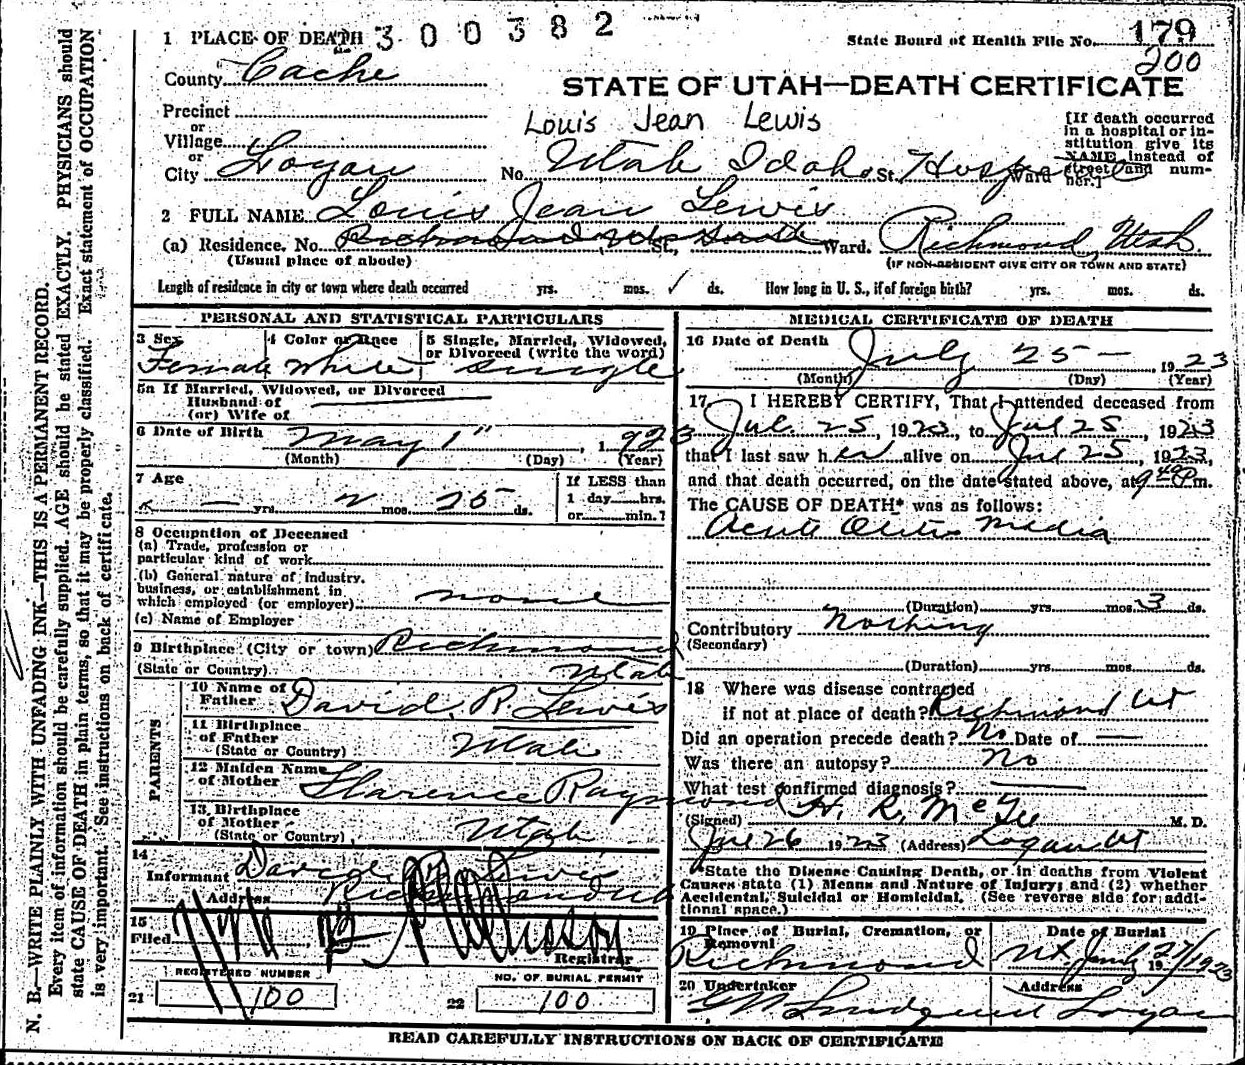 1 PLACE OF DEATH 300382
State Board of Health File No. 179
200
County Cache
STATE OF UTAH—DEATH CERTIFICATE
Precinct
or
Village
Louis Jean Lewis
[If death occurred in a hospital or institution give its NAME instead of street and number.]
or
City Logan No. Utah Idaho St. Hospital Ward
2 FULL NAME Louis Jean Lewis
(a) Residence. No. St., Ward. Richmond Utah.
(Usual place of abode) (IF NON-RESIDENT GIVE CITY OR TOWN AND STATE)
Length of residence in city or town where death occurred yrs. mos. ds. How long in U. S., if of foreign birth? yrs. mos. ds.
PERSONAL AND STATISTICAL PARTICULARS
3 Sex 4 Color or Race 5 Single, Married, Widowed, or Divorced (write the word)
Female White Single
5a If Married, Widowed, or Divorced
Husband of
(or) Wife of
6 Date of Birth May 1" 1923
(Month) (Day) (Year)
7 Age If LESS than
1 day hrs.
— yrs. 2 mos. 25 ds. or min.?
8 Occupation of Deceased
(a) Trade, profession or
particular kind of work
(b) General nature of industry.
business, or establishment in
which employed (or employer) none
(c) Name of Employer
9 Birthplace (City or town) Richmond
(State or Country) Utah
PARENTS
10 Name of Father David R. Lewis
11 Birthplace of Father
(State or Country) Utah
12 Maiden Name of Mother Florence Raymond
13 Birthplace of Mother
(State or Country) Utah
14
Informant David R Lewis
Address
15
Filed
Registrar
REGISTERED NUMBER NO. OF BURIAL PERMIT
21 100 22 100
MEDICAL CERTIFICATE OF DEATH
16 Date of Death July 25 — 1923
(Month) (Day) (Year)
17 I HEREBY CERTIFY, That I attended deceased from
Jul. 25, 1923, to Jul 25, 1923
that I last saw her alive on Jul 25, 1923,
and that death occurred, on the date stated above, at 9 40 P m.
The CAUSE OF DEATH* was as follows:
Acute Otitis Media
(Duration) yrs. mos. 3 ds.
Contributory Nothing
(Secondary)
(Duration) yrs. mos. ds.
18 Where was disease contracted
if not at place of death? Richmond Ut
Did an operation precede death? No Date of —
Was there an autopsy? No
What test confirmed diagnosis?
(Signed) H. R. McGee M. D.
Jul 26 1923 (Address) Logan Ut
*State the Disease Causing Death, or in deaths from Violent
Causes state (1) Means and Nature of Injury; and (2) whether
Accidental, Suicidal or Homicidal. (See reverse side for additional space.)
19 Place of Burial, Cremation, or Removal Date of Burial
Richmond Ut. July 27/1923
20 Undertaker Address
Logan
READ CAREFULLY INSTRUCTIONS ON BACK OF CERTIFICATE
N. B.—WRITE PLAINLY WITH UNFADING INK—THIS IS A PERMANENT RECORD.
Every item of information should be carefully supplied. AGE should be stated EXACTLY. PHYSICIANS should
state CAUSE OF DEATH in plain terms, so that it may be properly classified. Exact statement of OCCUPATION
is very important. See instructions on back of certificate.